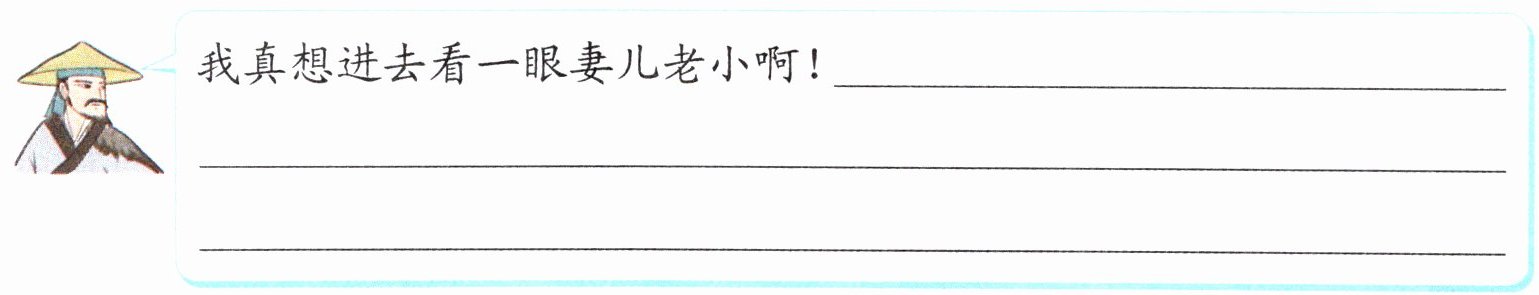 我真想进去看一眼妻儿老小啊！